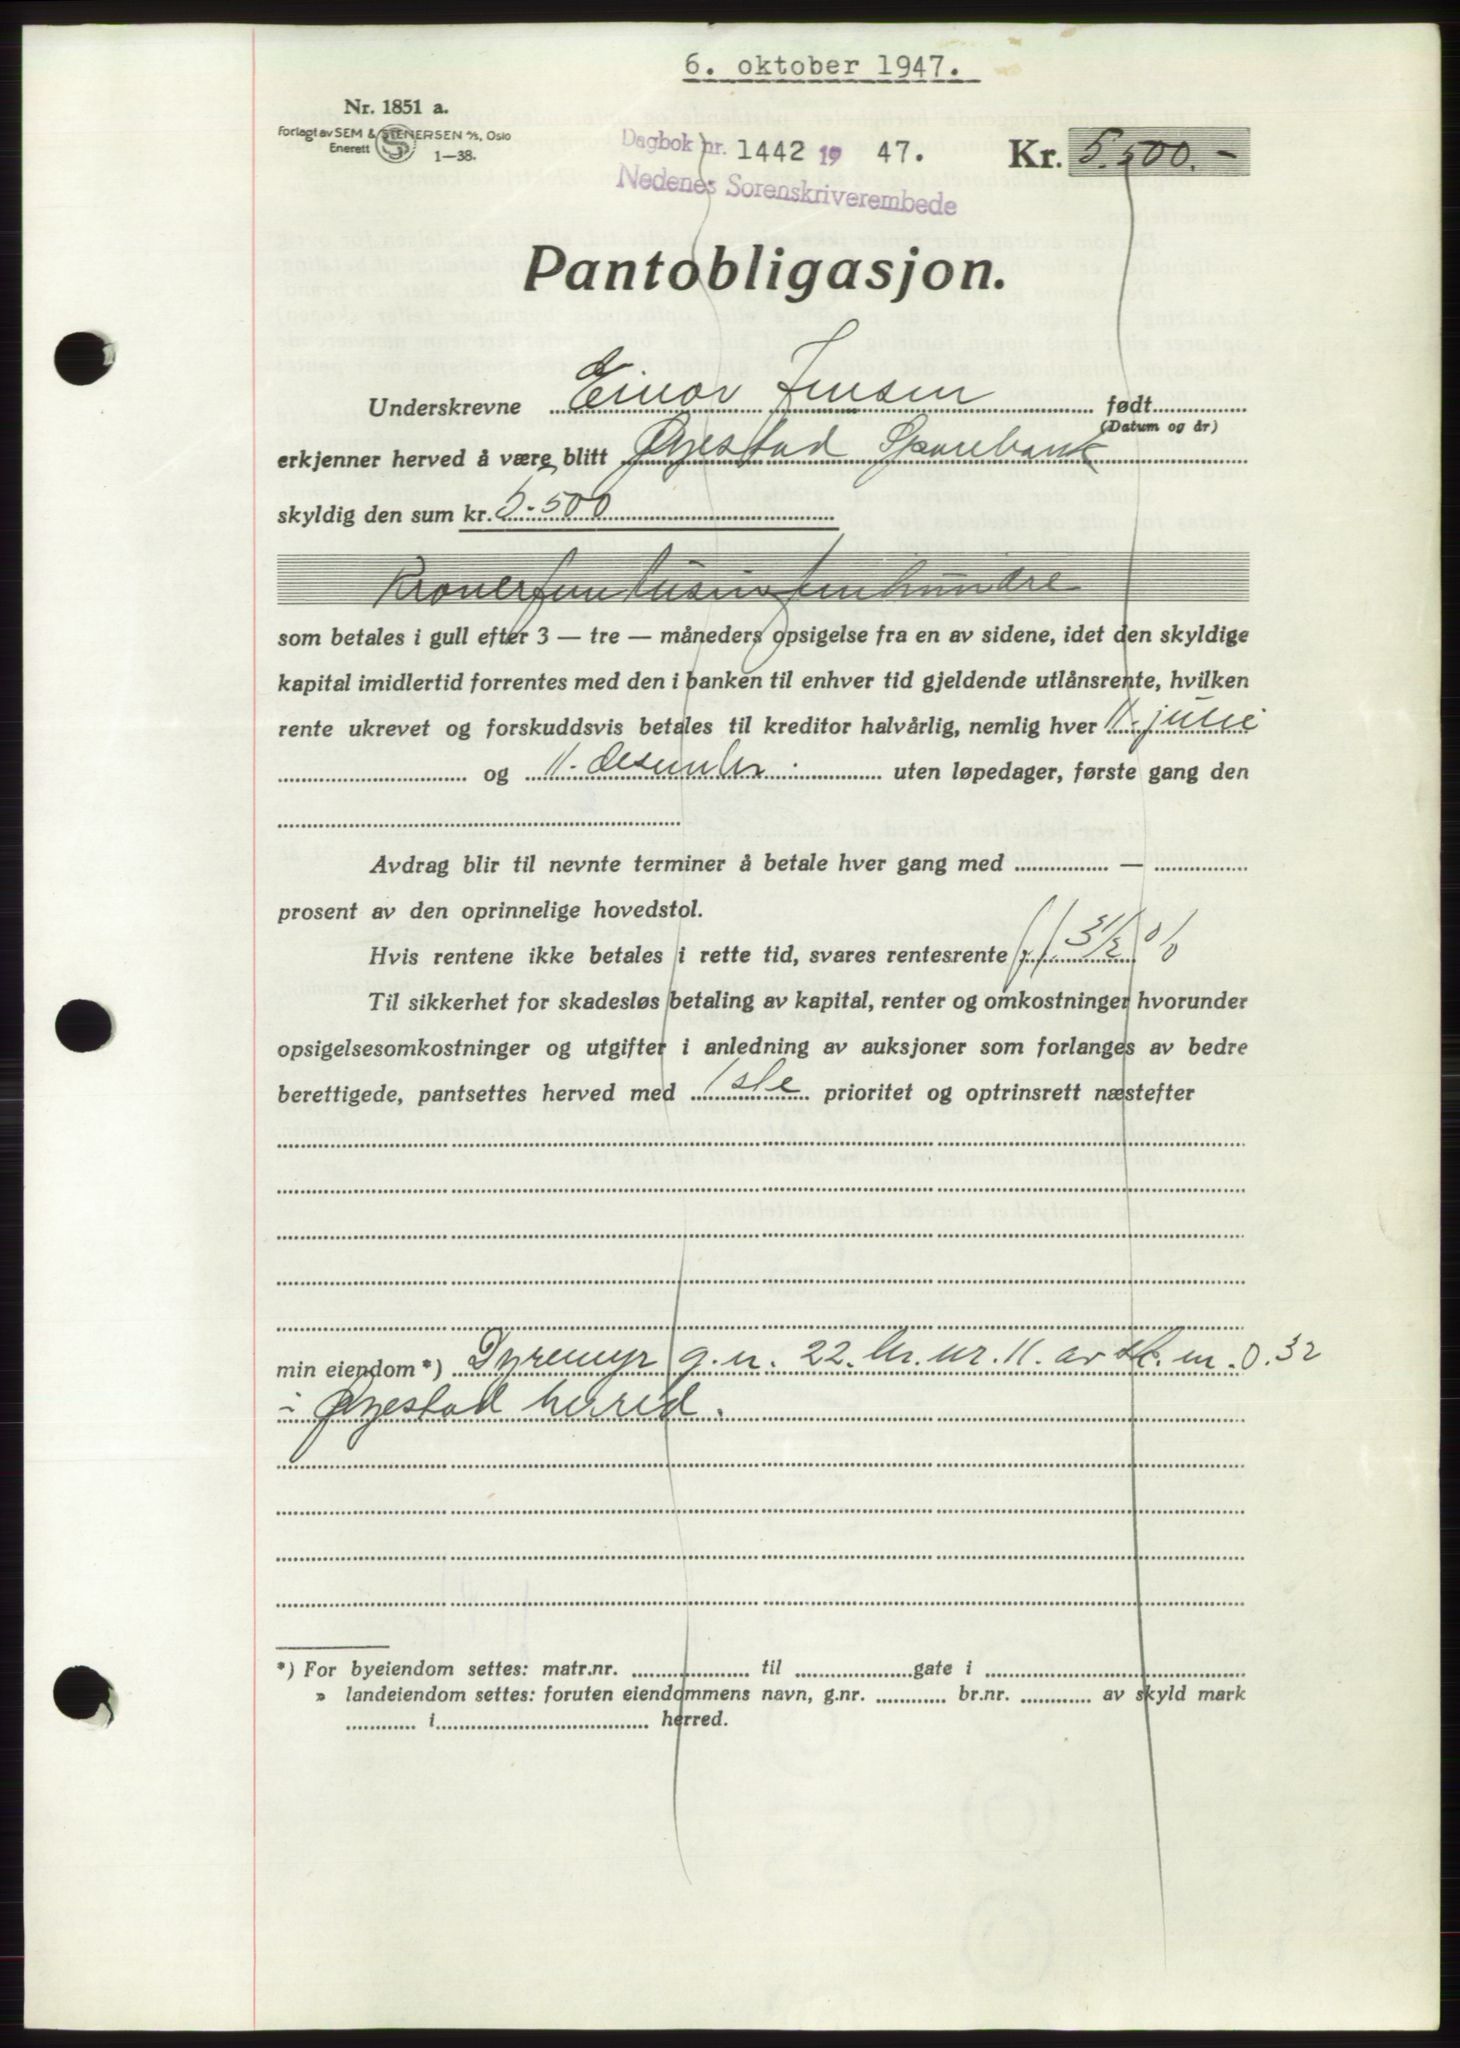 6. oktober 1947.
Nr. 1851 a.
Forlagt av SEM & STENERSEN A/S, Oslo
Enerett 1—38.
Dagbok nr. 1442 19 47.
Nedenes Sorenskriverembede
Kr. 5.500.-
Pantobligasjon.
Underskrevne Einar Jensen født
(Datum og år)
erkjenner herved å være blitt Øyestad Sparebank
skyldig den sum kr. 5.500
Kronerfemtusinfemhundre
som betales i gull efter 3 — tre — måneders opsigelse fra en av sidene, idet den skyldige
kapital imidlertid forrentes med den i banken til enhver tid gjeldende utlånsrente, hvilken
rente ukrevet og forskuddsvis betales til kreditor halvårlig, nemlig hver 11. juni
og 11. desember uten løpedager, første gang den
Avdrag blir til nevnte terminer å betale hver gang med —
prosent av den oprinnelige hovedstol.
Hvis rentene ikke betales i rette tid, svares rentesrente 3 1/2 %
Til sikkerhet for skadesløs betaling av kapital, renter og omkostninger hvorunder
opsigelsesomkostninger og utgifter i anledning av auksjoner som forlanges av bedre
berettigede, pantsettes herved med 1ste prioritet og optrinsrett næstefter
min eiendom *) Dyremyr g.n. 22. br.nr. 11. av sk. m. 0.32
i Øyestad herred.
*) For byeiendom settes: matr.nr. til gate i
» landeiendom settes: foruten eiendommens navn, g.nr. br.nr. av skyld mark
i herred.